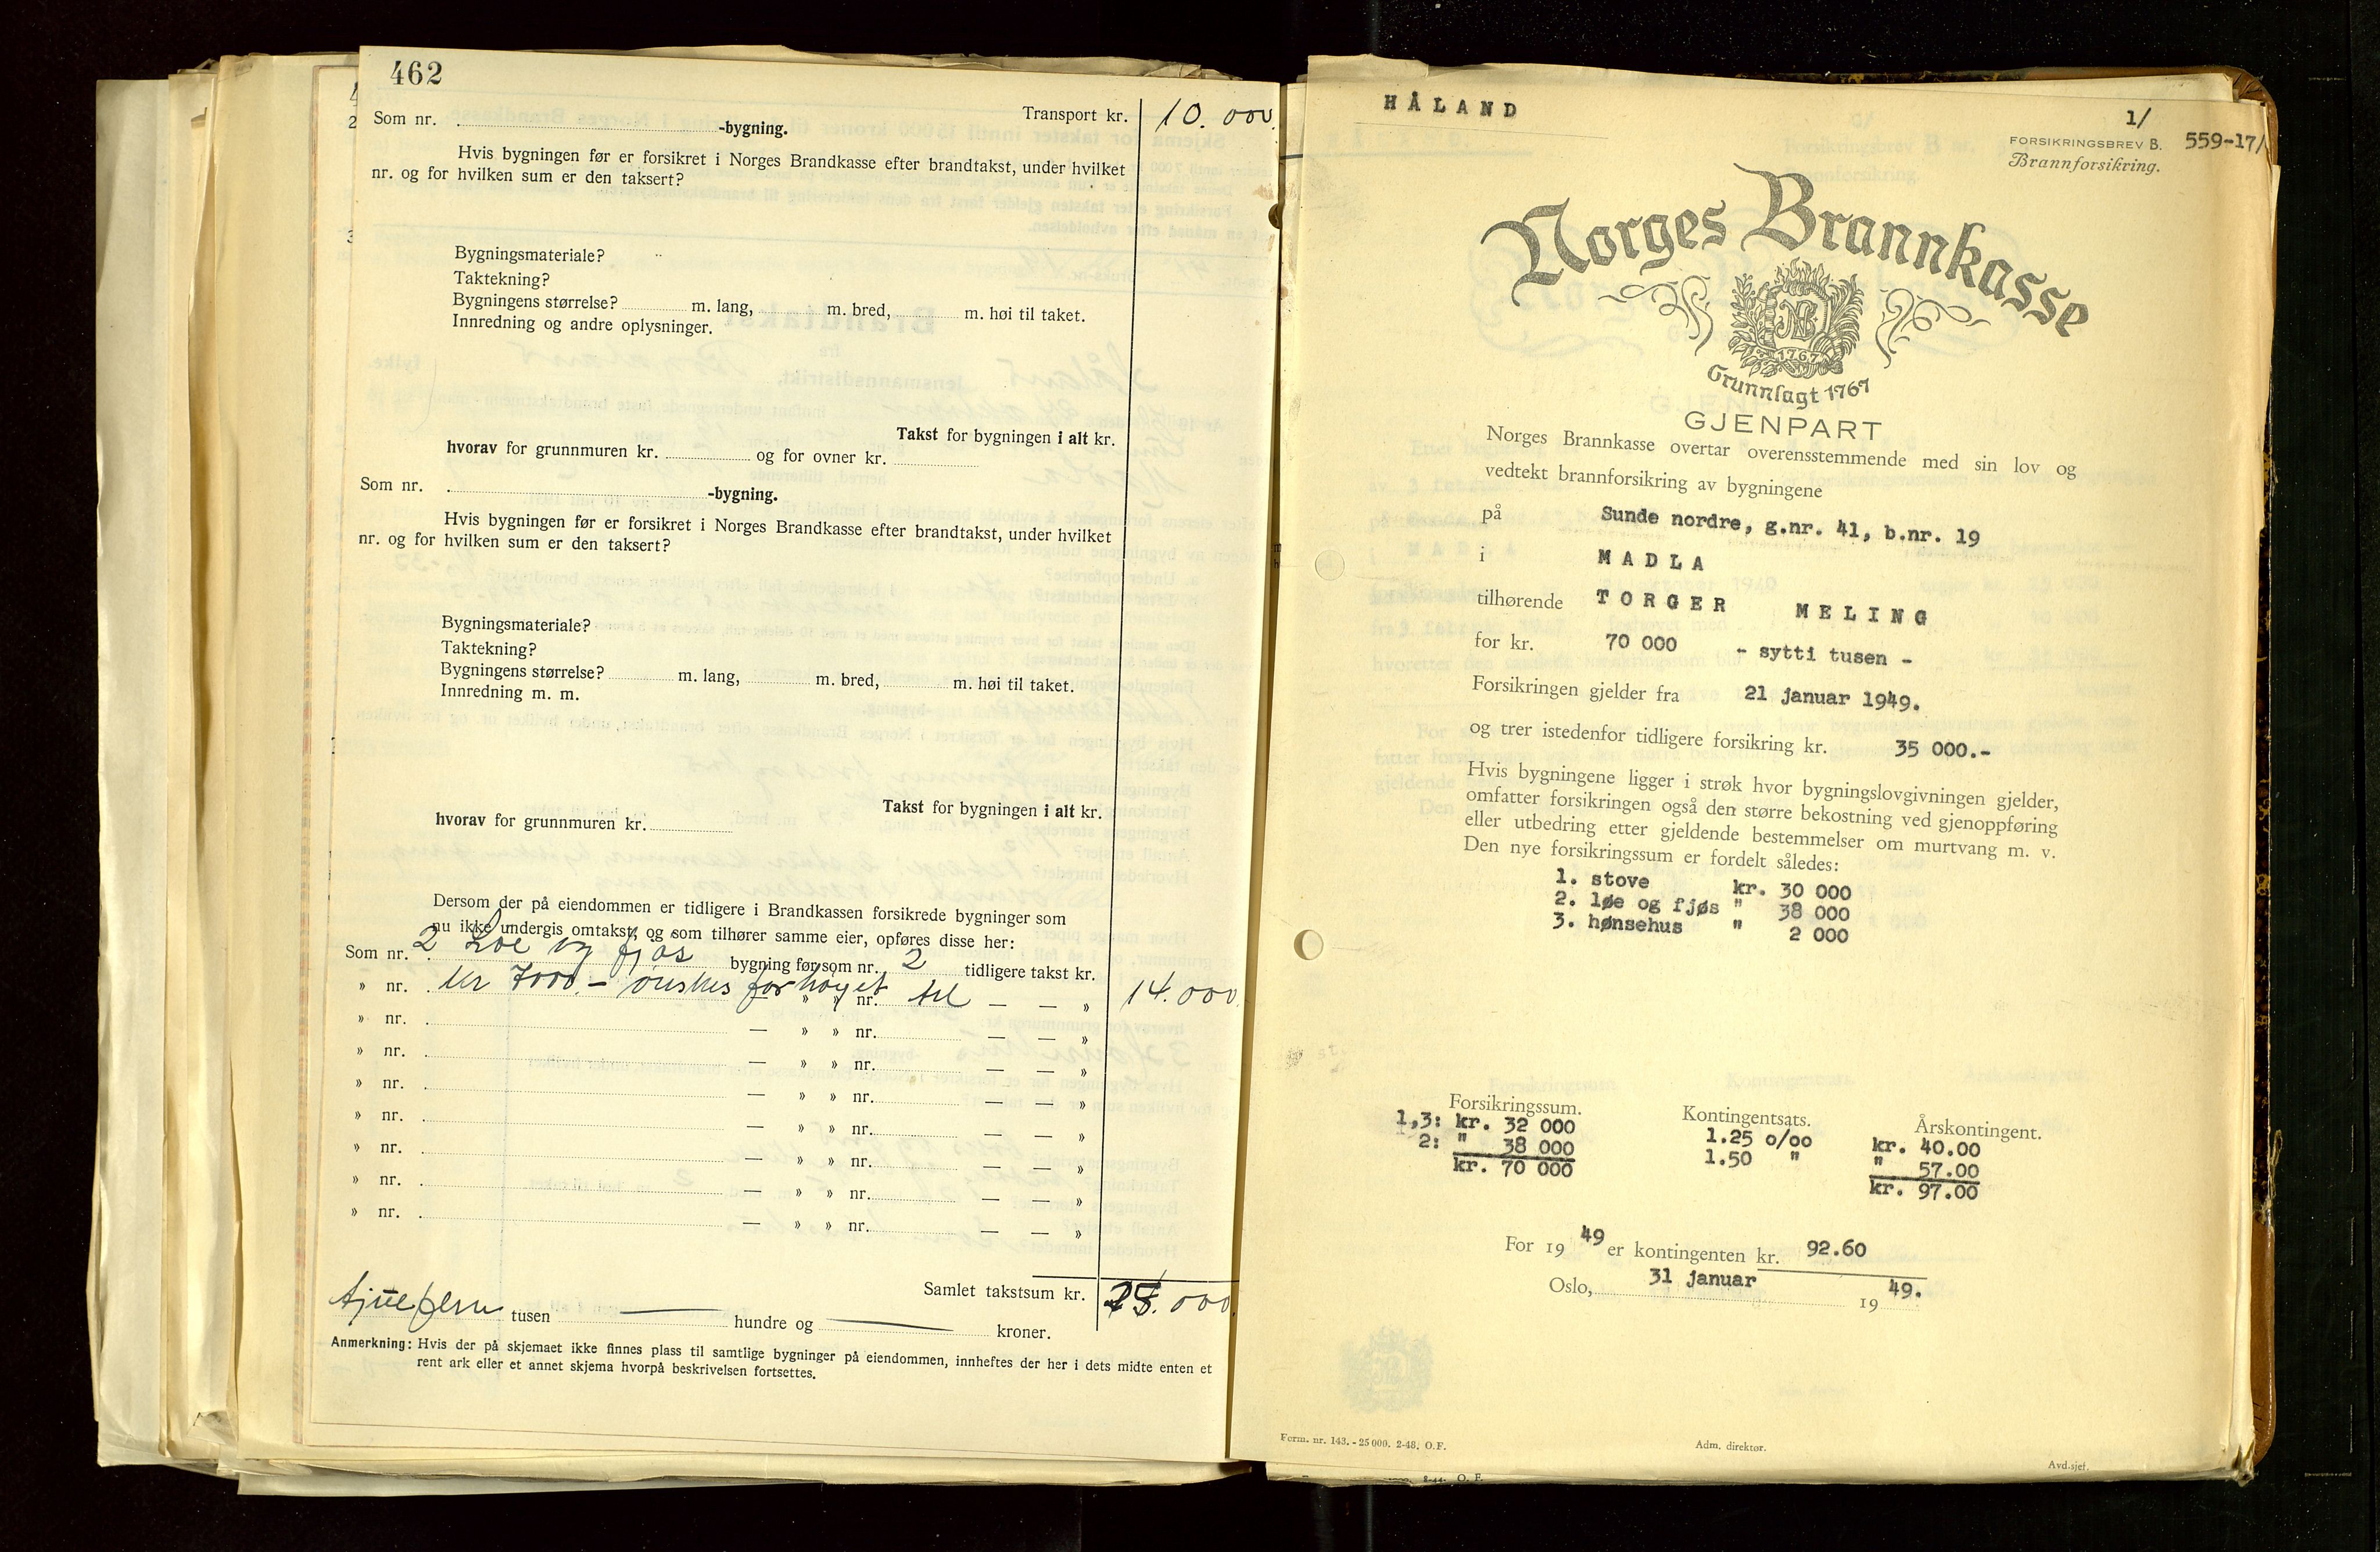 462
Transport kr. 10.000.
Som nr. -bygning.
Hvis bygningen før er forsikret i Norges Brandkasse efter brandtakst, under hvilket
nr. og for hvilken sum er den taksert?
Bygningsmateriale?
Taktekning?
Bygningens størrelse? m. lang, m. bred, m. høi til taket.
Innredning og andre oplysninger.
Takst for bygningen i alt kr.
hvorav for grunnmuren kr. og for ovner kr.
Som nr. -bygning.
Hvis bygningen før er forsikret i Norges Brandkasse efter brandtakst, under hvilket
nr. og for hvilken sum er den taksert?
Bygningsmateriale?
Taktekning?
Bygningens størrelse? m. lang, m. bred, m. høi til taket.
Innredning m. m.
Takst for bygningen i alt kr.
hvorav for grunnmuren kr.
Dersom der på eiendommen er tidligere i Brandkassen forsikrede bygninger som
nu ikke undergis omtakst, og som tilhører samme eier, opføres disse her:
Som nr. 2 Löe og fjøs bygning før som nr. 2 tidligere takst kr.
» nr. kr 7000.- ønskes forhöyet » nr. til — — » 14.000.
» nr. — » » nr. — — »
» nr. — » » nr. — — »
» nr. — » » nr. — — »
» nr. — » » nr. — — »
» nr. — » » nr. — — »
» nr. — » » nr. — — »
» nr. — » » nr. — — »
Samlet takstsum kr.
tusen — hundre og — kroner.
Anmerkning: Hvis der på skjemaet ikke finnes plass til samtlige bygninger på eiendommen, innheftes der her i dets midte enten et
rent ark eller et annet skjema hvorpå beskrivelsen fortsettes.
HÅLAND
1/
FORSIKRINGSBREV B. 559-17/
Brannforsikring.
Norges Brannkasse
NB
1767
Grunnlagt 1767
GJENPART
Norges Brannkasse overtar overensstemmende med sin lov og
vedtekt brannforsikring av bygningene
på Sunde nordre, g.nr. 41, b.nr. 19
i MADLA
tilhørende TORGER MELING
for kr. 70 000 - sytti tusen -
Forsikringen gjelder fra 21 januar 1949.
og trer istedenfor tidligere forsikring kr. 35 000.-
Hvis bygningene ligger i strøk hvor bygningslovgivningen gjelder,
omfatter forsikringen også den større bekostning ved gjenoppføring
eller utbedring etter gjeldende bestemmelser om murtvang m. v.
Den nye forsikringssum er fordelt således:
1. stove kr. 30 000
2. løe og fjøs " 38 000
3. hønsehus " 2 000
Forsikringssum. Kontingentsats. Årskontingent.
1,3: kr. 32 000 1.25 o/oo kr. 40.00
2: " 38 000 1.50 " " 57.00
kr. 70 000 kr. 97.00
For 1949 er kontingenten kr. 92.60
Oslo, 31 januar 1949.
Form. nr. 143. - 25 000. 2-48. O. F.
Adm. direktør.
Avd.sjef.